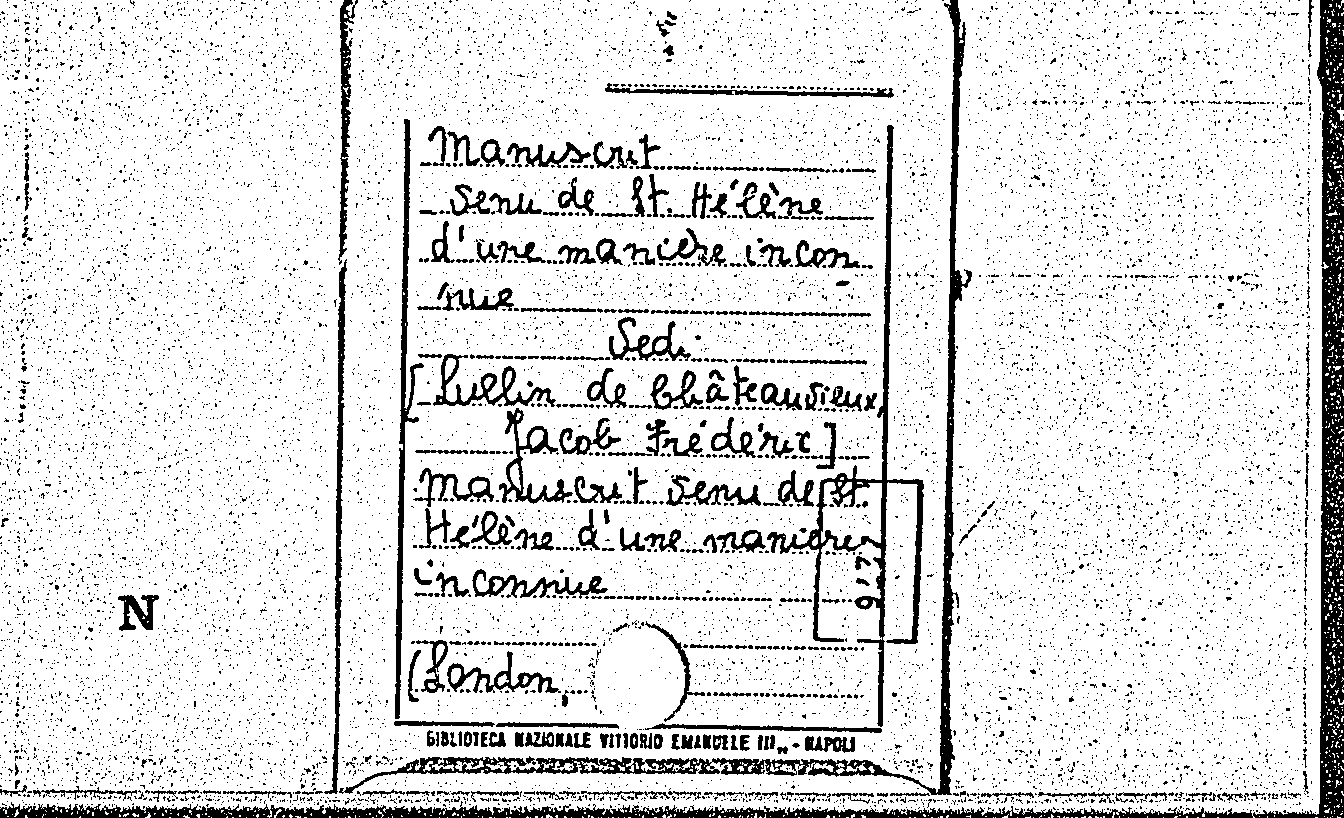 Manuscrit
venu de St. Hélène
d'une manière incon-
nue
Vedi:
[Lullin de Châteauvieux,
Jacob Fréderic]
Manuscrit venu de St.
Hélène d'une manière
inconnue
(London,
BIBLIOTECA NAZIONALE VITTORIO EMANUELE III,, - NAPOLI
N